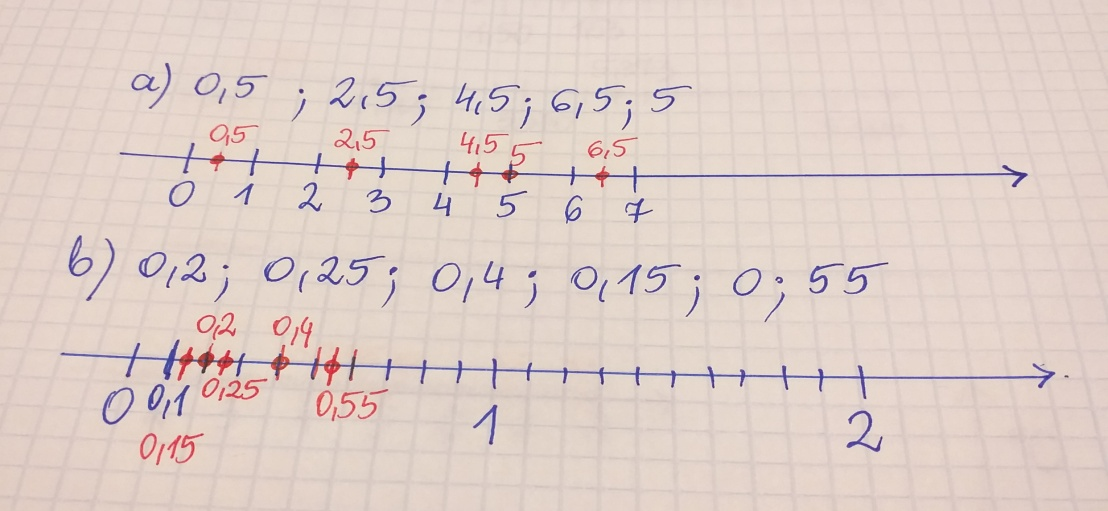 a) 0,5 ; 2,5; 4,5; 6,5; 5
0,5 2,5 4,5 5 6,5
0 1 2 3 4 5 6 7
b) 0,2; 0,25; 0,4; 0,15; 0; 55
0,2 0,4
0 0,1 0,25 0,55 1 2
0,15